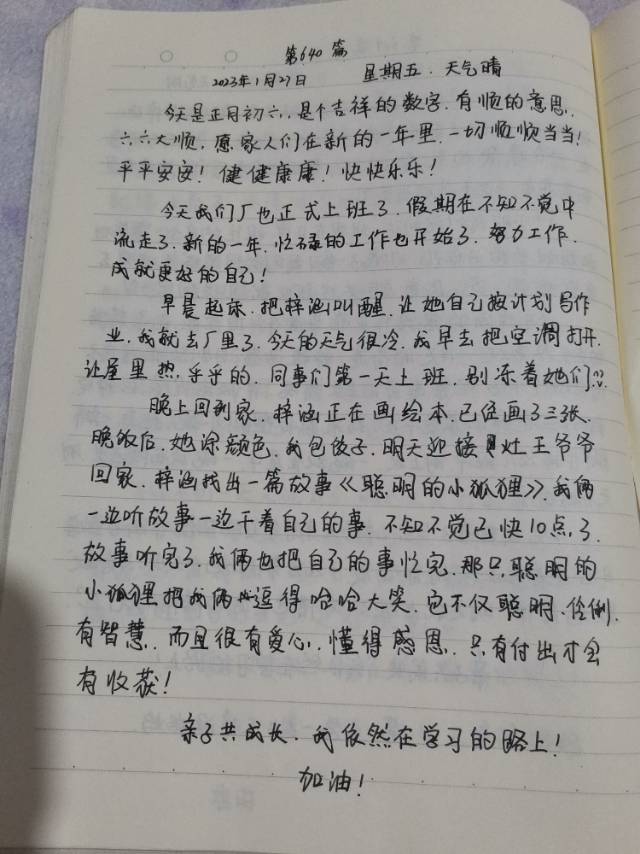 第640篇
2023年1月27日 星期五. 天气晴
今天是正月初六,是个吉祥的数字.有顺的意思.
六六大顺.愿家人们在新的一年里.一切顺顺当当!
平平安安!健健康康!快快乐乐!
今天我们厂也正式上班了.假期在不知不觉中
流走了.新的一年.忙碌的工作也开始了.努力工作.
成就更好的自己!
早晨起床.把梓涵叫醒.让她自己按计划写作
业.我就去厂里了.今天的天气很冷.我早去把空调打开.
让屋里热乎乎的.同事们第一天上班.别冻着她们??
晚上回到家.梓涵正在画绘本.已经画了三张.
晚饭后.她涂颜色.我包饺子.明天迎接灶王爷爷
回家.梓涵找出一篇故事《聪明的小狐狸》.我俩
一边听故事一边干着自己的事.不知不觉已快10点了.
故事听完了.我俩也把自己的事忙完.那只聪明的
小狐狸把我俩逗得哈哈大笑.它不仅聪明、伶俐.
有智慧.而且很有爱心.懂得感恩.只有付出才会
有收获!
亲子共成长.我依然在学习的路上!
加油!